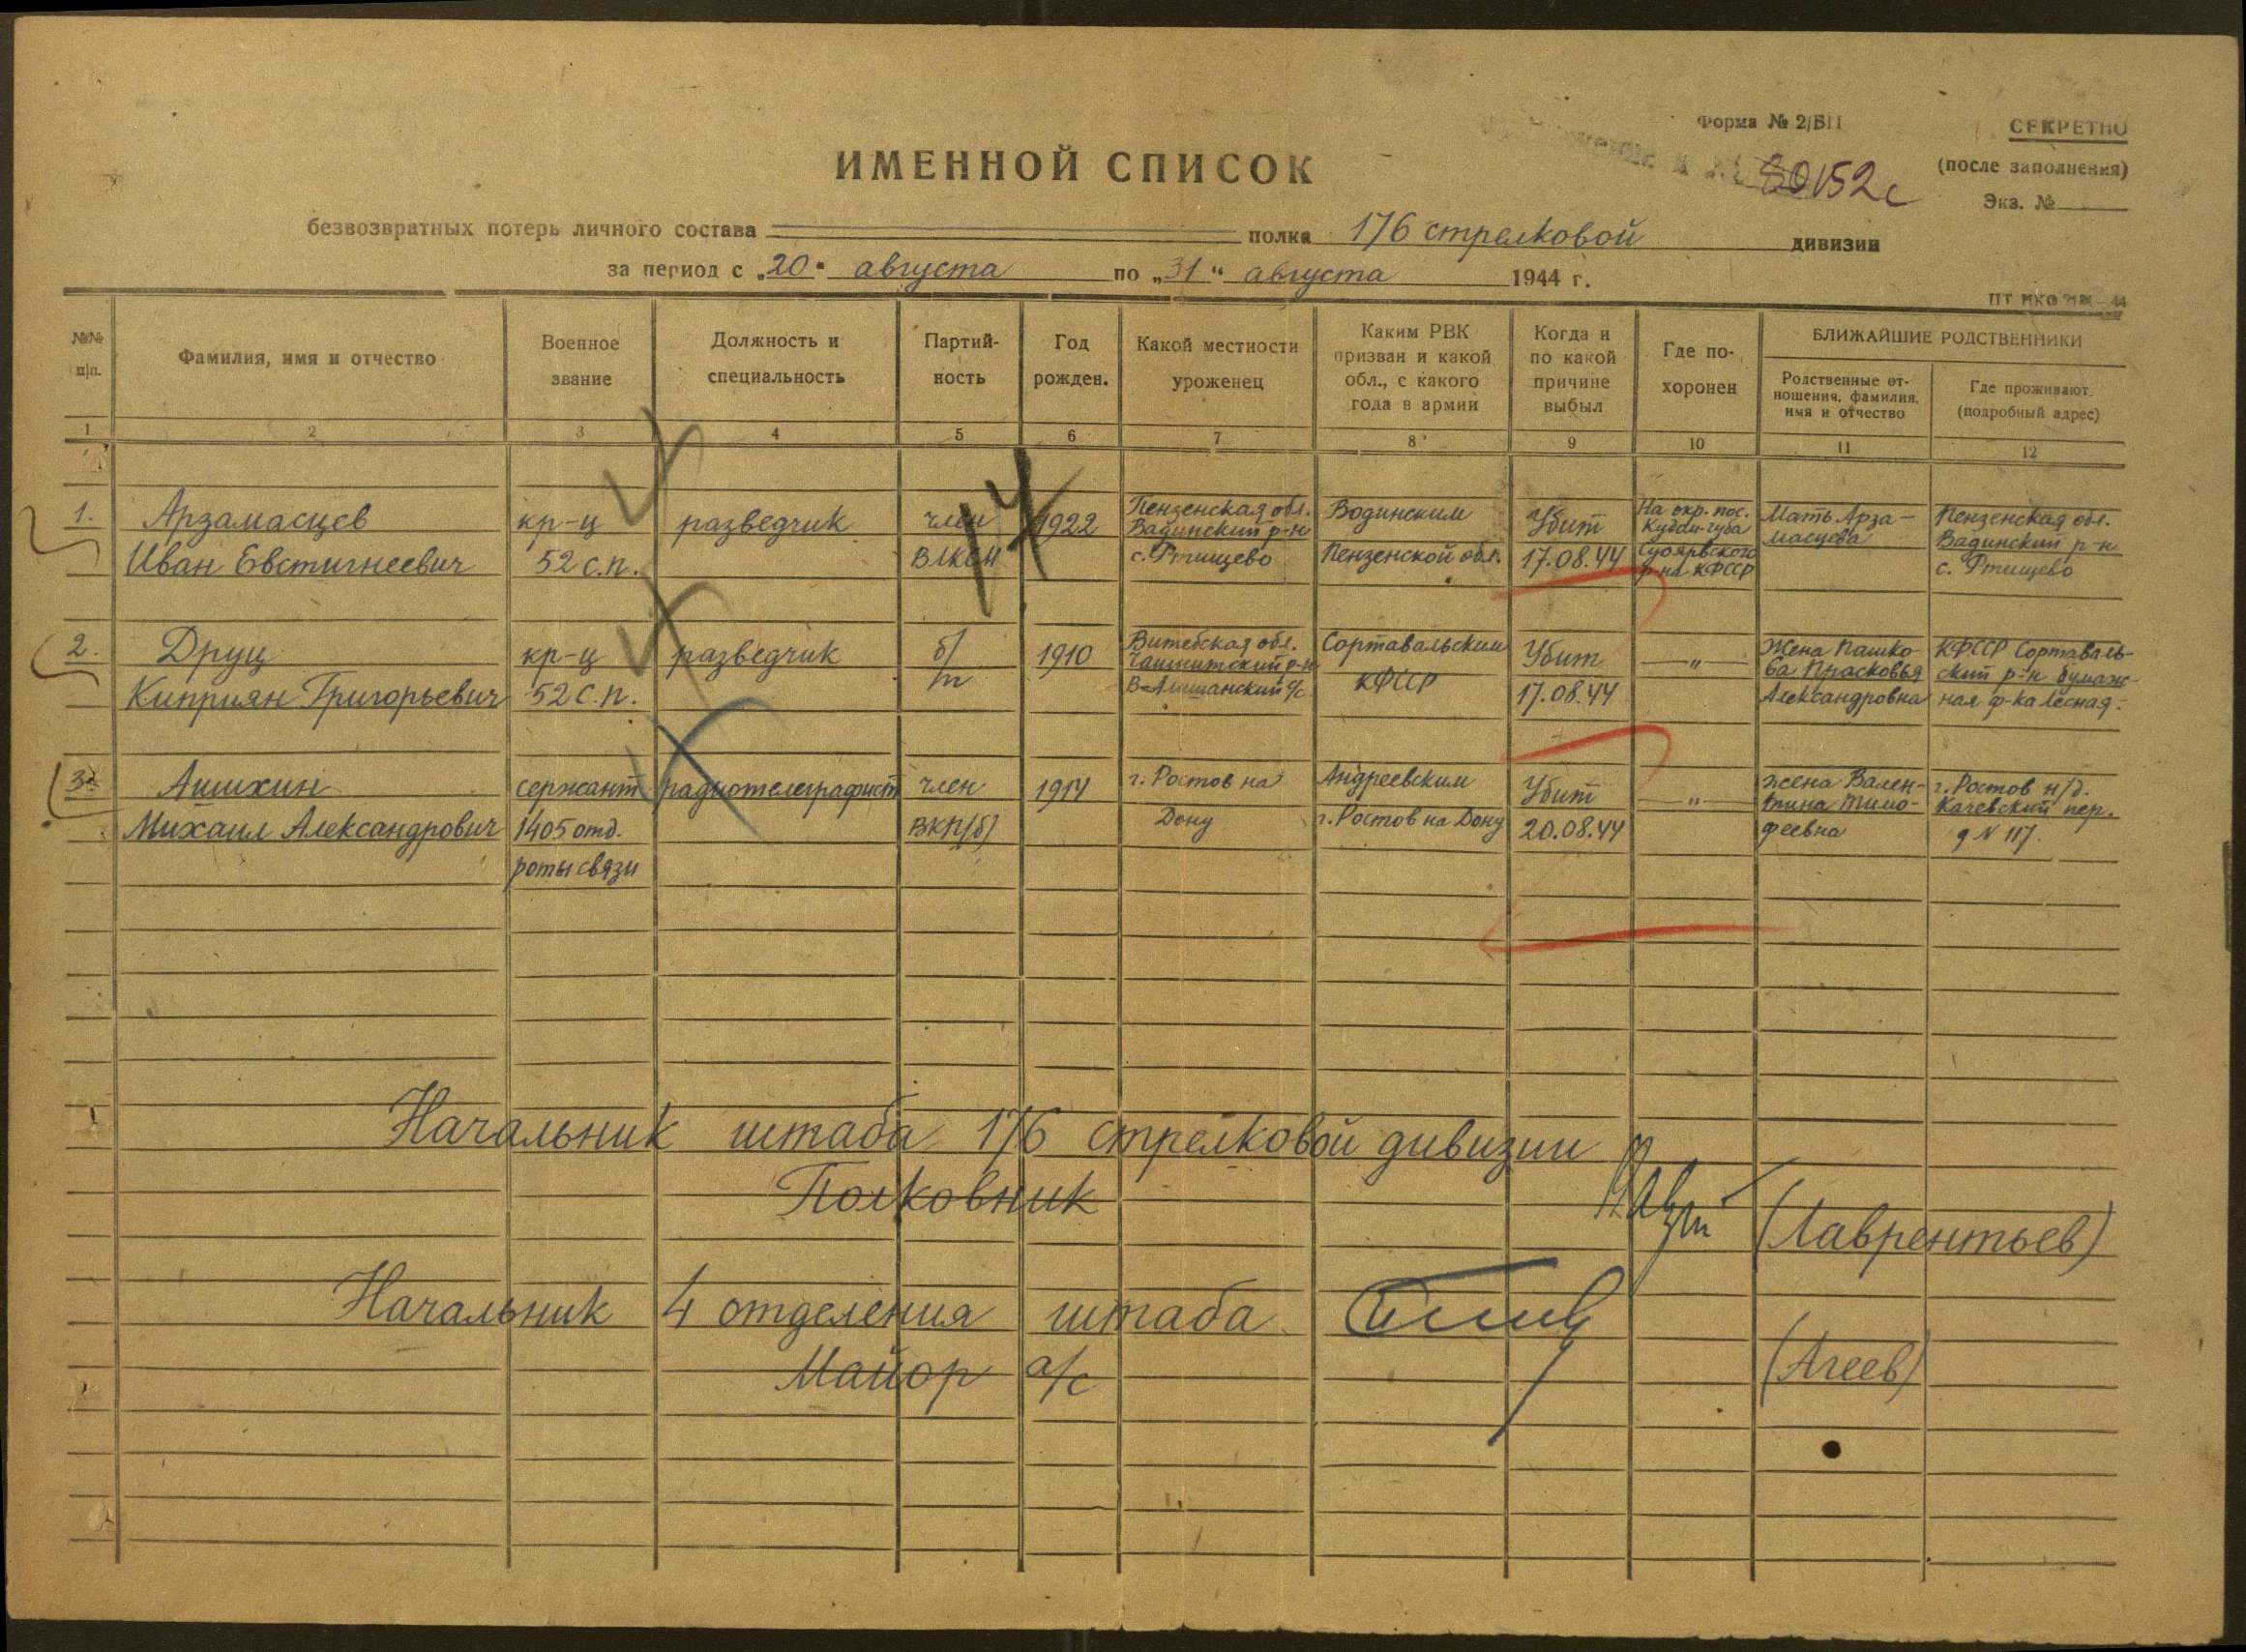 Форма № 2/БП
СЕКРЕТНО
(после заполнения)
Экз. №
80152с
ИМЕННОЙ СПИСОК
безвозвратных потерь личного состава полка 176 стрелковой дивизии
за период с „20“ августа по „31“ августа 1944 г.
№№ п/п.
Фамилия, имя и отчество
Военное звание
Должность и специальность
Партий-
ность
Год рожден.
Какой местности уроженец
Каким РВК
призван и какой
обл., с какого
года в армии
Когда и
по какой
причине
выбыл
Где по-
хоронен
БЛИЖАЙШИЕ РОДСТВЕННИКИ
Родственные от-
ношения, фамилия,
имя и отчество
Где проживают
(подробный адрес)
1 2 3 4 5 6 7 8 9 10 11 12
14
1.
Арзамасцев
Иван Евстигнеевич
кр-ц
52 с.п.
разведчик
член
ВЛКСМ
1922
Пензенская обл.
Вадинский р-н
с. Ртищево
Водинским
Пензенской обл.
Убит
17.08.44
На окр. пос.
Кудам-губа
Суоярвского
р-на КФССР
Мать Арза-
масцева
Пензенская обл.
Вадинский р-н
с. Ртищево
2.
Друц
Киприян Григорьевич
кр-ц
52 с.п.
разведчик
б/
п
1910
Витебская обл.
Чашнитский р-н
Сортавальским
КФССР
Убит
17.08.44
—„—
Жена Пашко-
ва Прасковья
Александровна
КФССР Сортаваль-
ский р-н бумаж-
ная ф-ка Лесная.
3.
Ашихин
Михаил Александрович
сержант
1405 отд.
роты связи
радиотелеграфист
член
ВКП(б)
1914
г. Ростов на
Дону
Андреевским
г. Ростов на Дону
Убит
20.08.44
—„—
жена Вален-
тина Тимо-
феевна
г. Ростов н/д.
Качевский пер.
д N 117.
Начальник штаба 176 стрелковой дивизии
Полковник
(Лаврентьев)
Начальник 4 отделения штаба
Майор а/с
(Агеев)